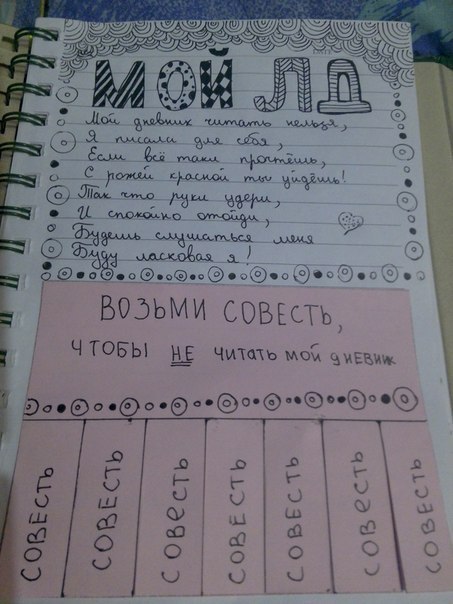 МОЙ ЛД
Мой дневник читать нельзя,
Я писала для себя,
Если всё таки прочтёшь,
С рожей красной ты уйдёшь!
Так что руки удери,
И спокойно отойди,
Будешь слушаться меня
Буду ласковая я!
ВОЗЬМИ СОВЕСТЬ,
ЧТОБЫ НЕ ЧИТАТЬ МОЙ ДНЕВНИК
СОВЕСТЬ
СОВЕСТЬ
СОВЕСТЬ
СОВЕСТЬ
СОВЕСТЬ
СОВЕСТЬ
СОВЕСТЬ